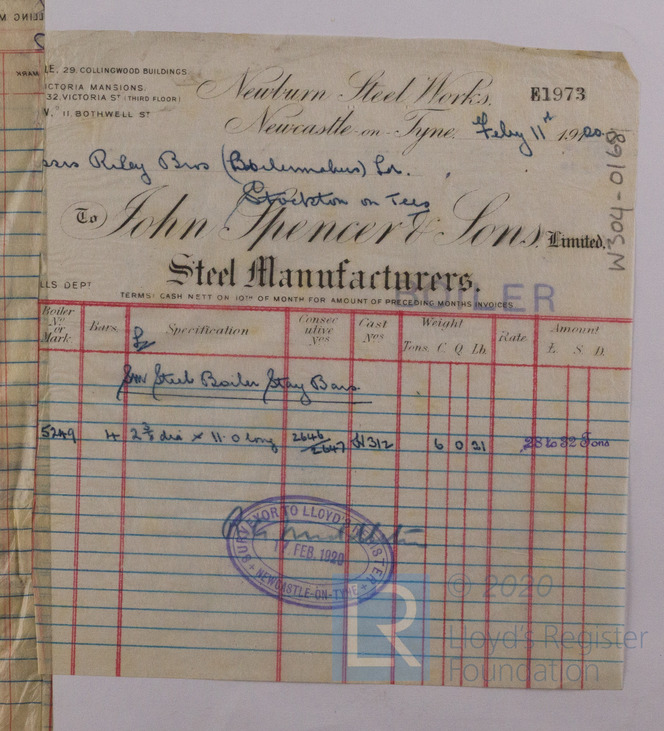 LE, 29. COLLINGWOOD BUILDINGS
ICTORIA MANSIONS,
32, VICTORIA ST (THIRD FLOOR)
W, 11, BOTHWELL ST
Newburn Steel Works,
E1973
Newcastle-on-Tyne, Feby 11th 1920
W304-0168
ssrs Riley Bros (Boilermakers) Ld.
Stockton on Tees
To John Spencer & Sons, Limited.
Steel Manufacturers.
LLS DEPT
TERMS: CASH NETT ON 10TH OF MONTH FOR AMOUNT OF PRECEDING MONTHS INVOICES
BOILER
Boiler No or Mark Bars Specification Consecutive Nos Cast Nos Weight Rate Amount
Tons. C. Q. Lb. £. S. D.
Sm Steel Boiler Stay Bars
5249 4 2 3/8 dia × 11-0 long 2646/2647 6 0 21 28 to 32 Tons
SURVEYOR TO LLOYD'S REGISTER
17 FEB. 1920
NEWCASTLE-ON-TYNE
LR
© 2020
Lloyd's Register
Foundation